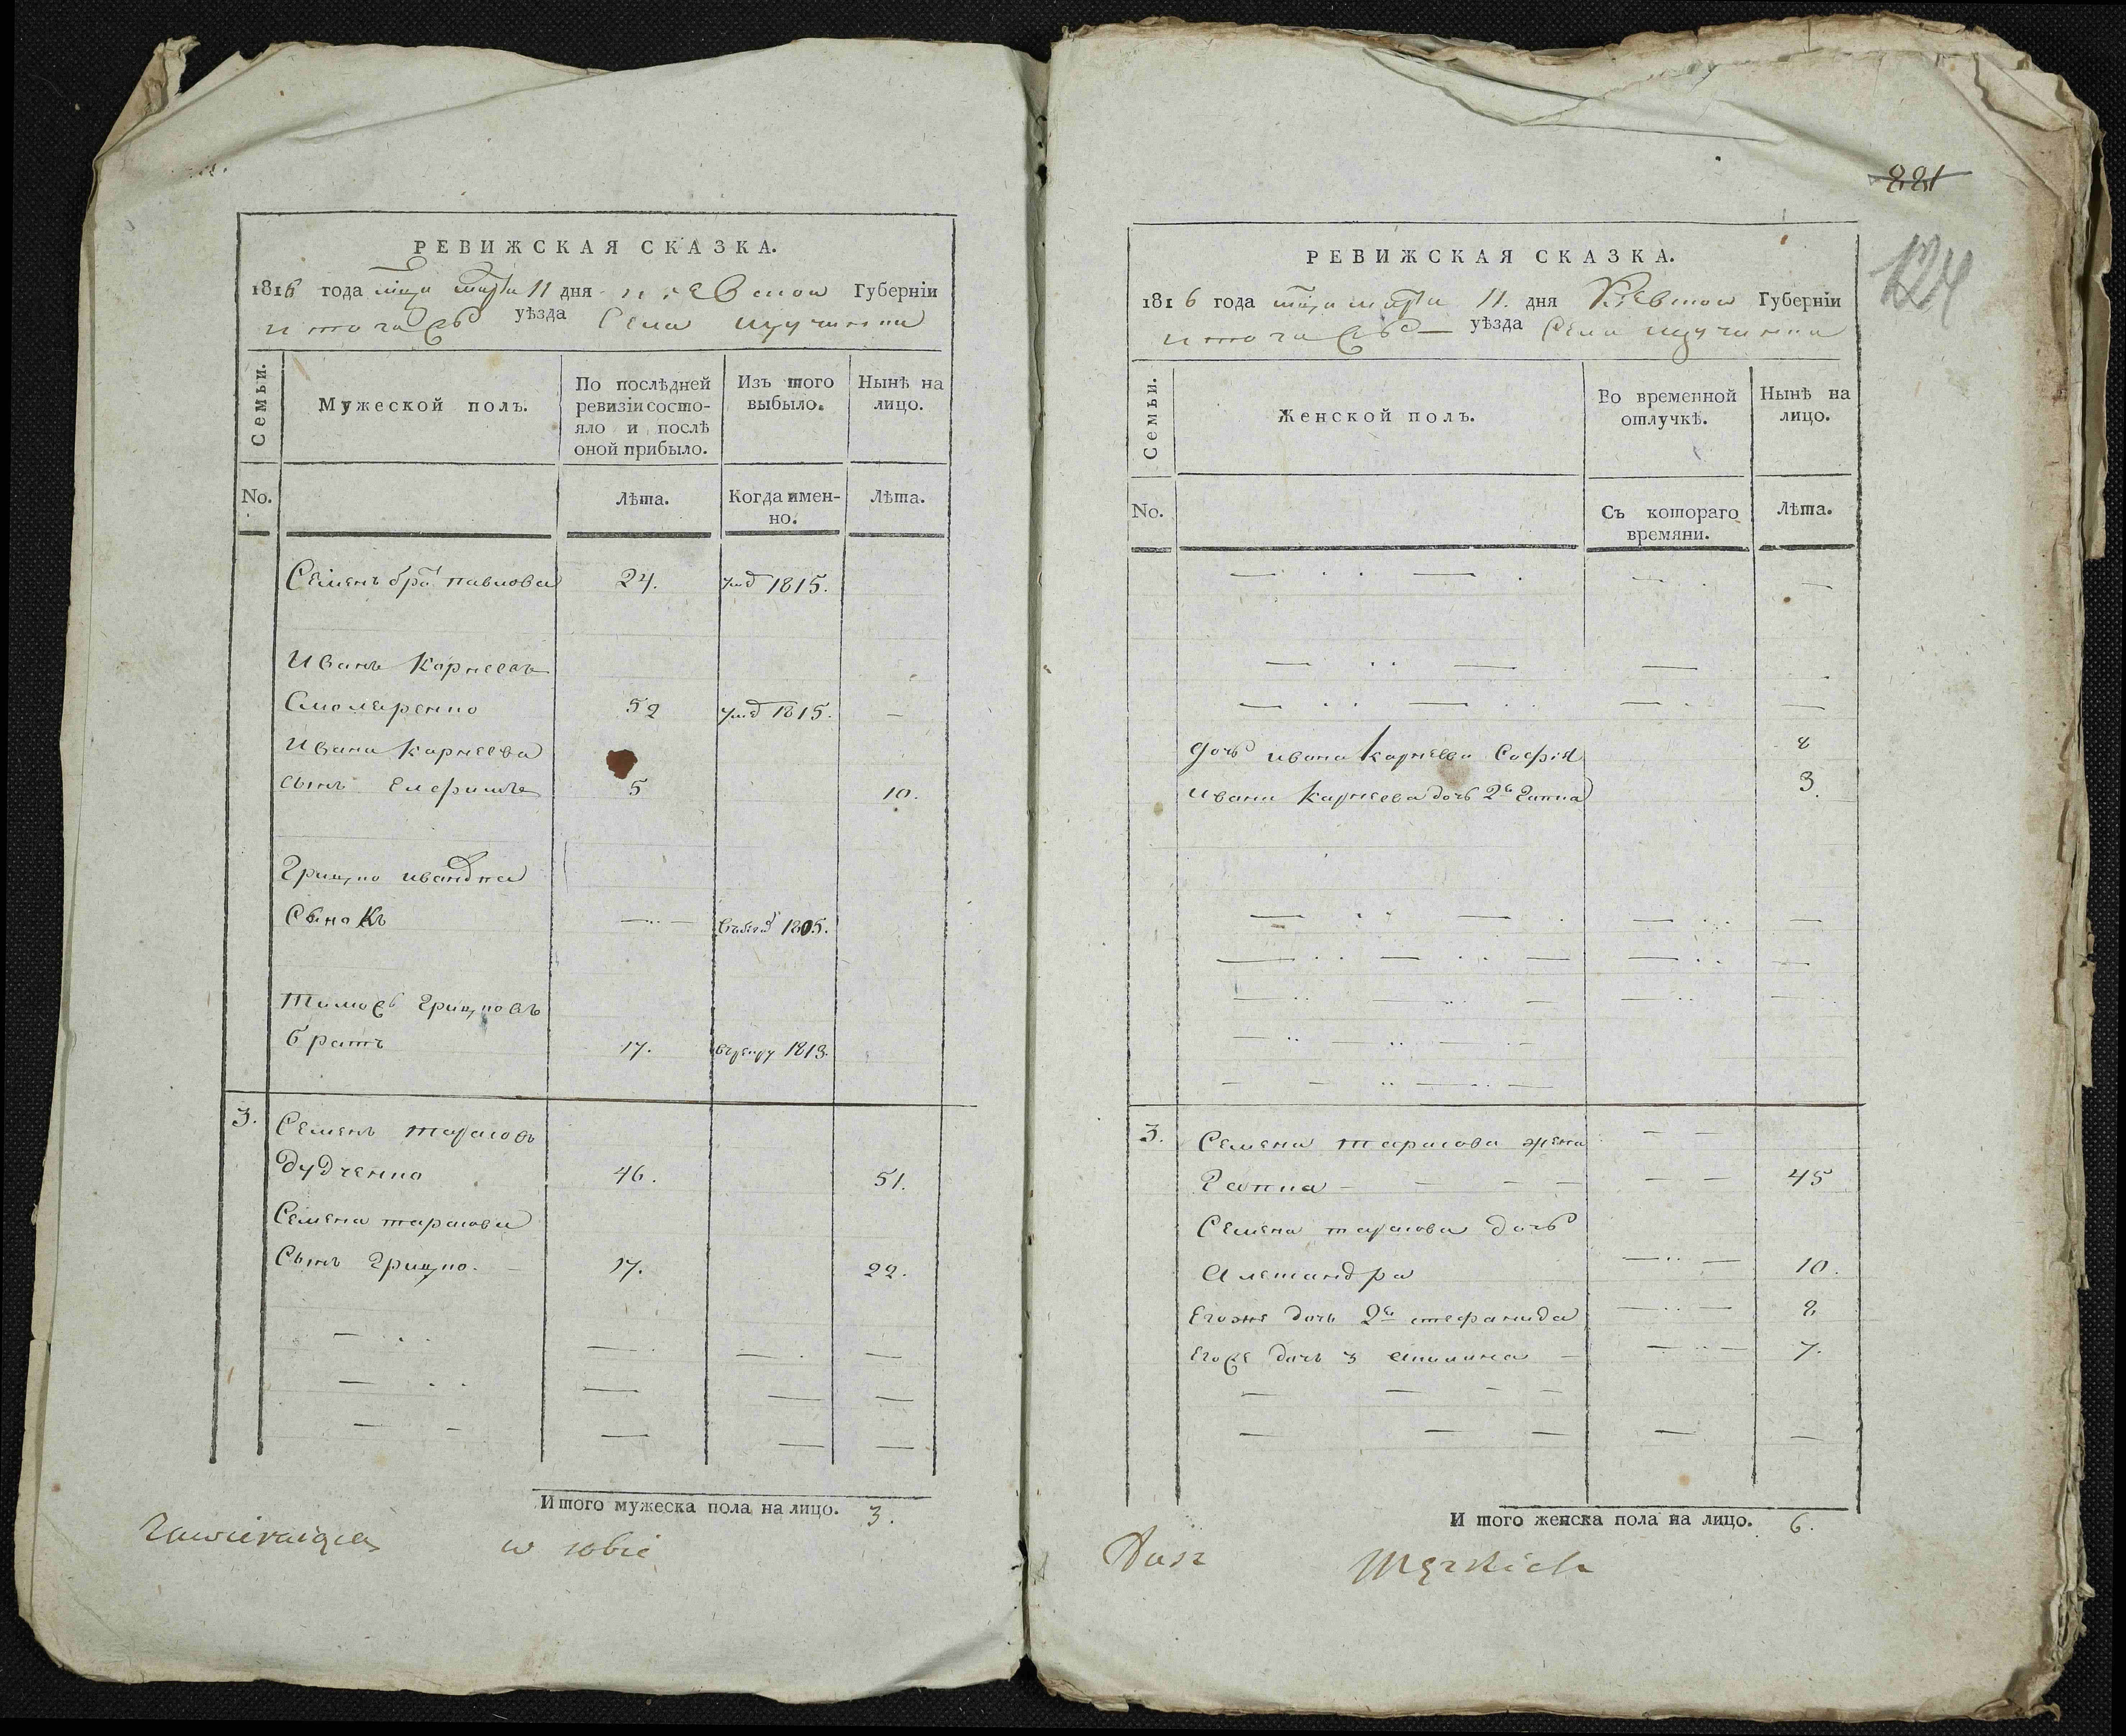 РЕВИЖСКАЯ СКАЗКА.
1816 года мца марта 11 дня киевской Губерніи
уѣзда Села щучинки
Семьи.
Мужеской полъ.
По послѣдней ревизіи состояло и послѣ оной прибыло.
Изъ того выбыло.
Нынѣ на лицо.
No.
Лѣта.
Когда именно.
Лѣта.
Семенъ бра павлова 24. умд 1815.
Иванъ Карнеевъ
Смоляренко 52 умд 1815. —
Ивана Карнеева
сынъ 5 10.
Грицко ивана
Сынокъ — 1805.
Тимофъ Грицковъ
братъ 17. врекру 1813.
3. Семенъ тарасовъ
дудченко 46. 51.
Семена тарасова
Сынъ Грицко. 17. 22.
Итого мужеска пола на лицо. 3.
Zawieraiąca w sobie
221
124
РЕВИЖСКАЯ СКАЗКА.
1816 года мца марта 11. дня Киевской Губерніи
уѣзда Села щучинки
Семьи.
Женской полъ.
Во временной отлучкѣ.
Нынѣ на лицо.
No.
Съ котораго времяни.
Лѣта.
дочь ивана Карнеева Софія 8
ивана Карнеева дочь 2я Гапка 3.
3. Семена тарасова жена
Гапка 45
Семена тарасова дочь
Александра 10.
Егоже дочь 2я стефанида 8
Егоже дочь 3 акилина 7.
Итого женска пола на лицо. 6.
Dusz Męzkich